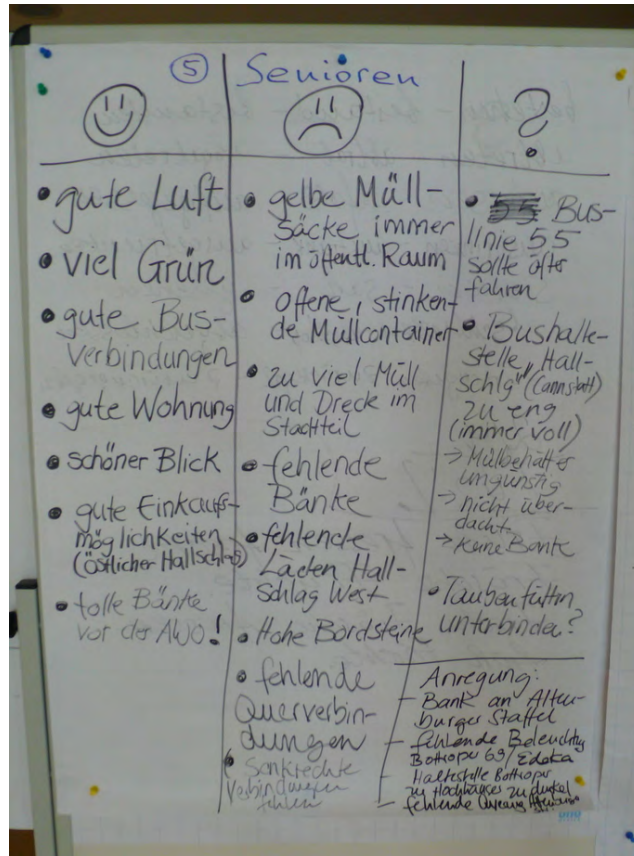 5 Senioren
• gute Luft
• viel Grün
• gute Bus-
verbindungen
• gute Wohnung
• schöner Blick
• gute Einkaufs-
möglichkeiten
(östlicher Hallschlag)
• tolle Bänke
vor der AWO!
• gelbe Müll-
säcke immer
im öffentl. Raum
• offene, stinken-
de Müllcontainer
• zu viel Müll
und Dreck im
Stadtteil
• fehlende
Bänke
• fehlende
Läden Hall-
schlag West
• Hohe Bordsteine
• fehlende
Querverbin-
dungen
• Senkrechte
fehlen
?
• Bus-
linie 55
sollte öfter
fahren
• Bushalte-
stelle "Hall-
schlg" (Cannstatt)
zu eng
(immer voll)
→ Müllbehälter
ungünstig
→ nicht über-
dacht
→ keine Bank
• Tauben füttern
unterbinden?
Anregung:
- Bank an Alten-
burger Staffel
- fehlende Beleuchtg
Bottroper 69/Edeka
- Haltestelle Bottroper
zu Hochhäuser zu dunkel
- fehlende